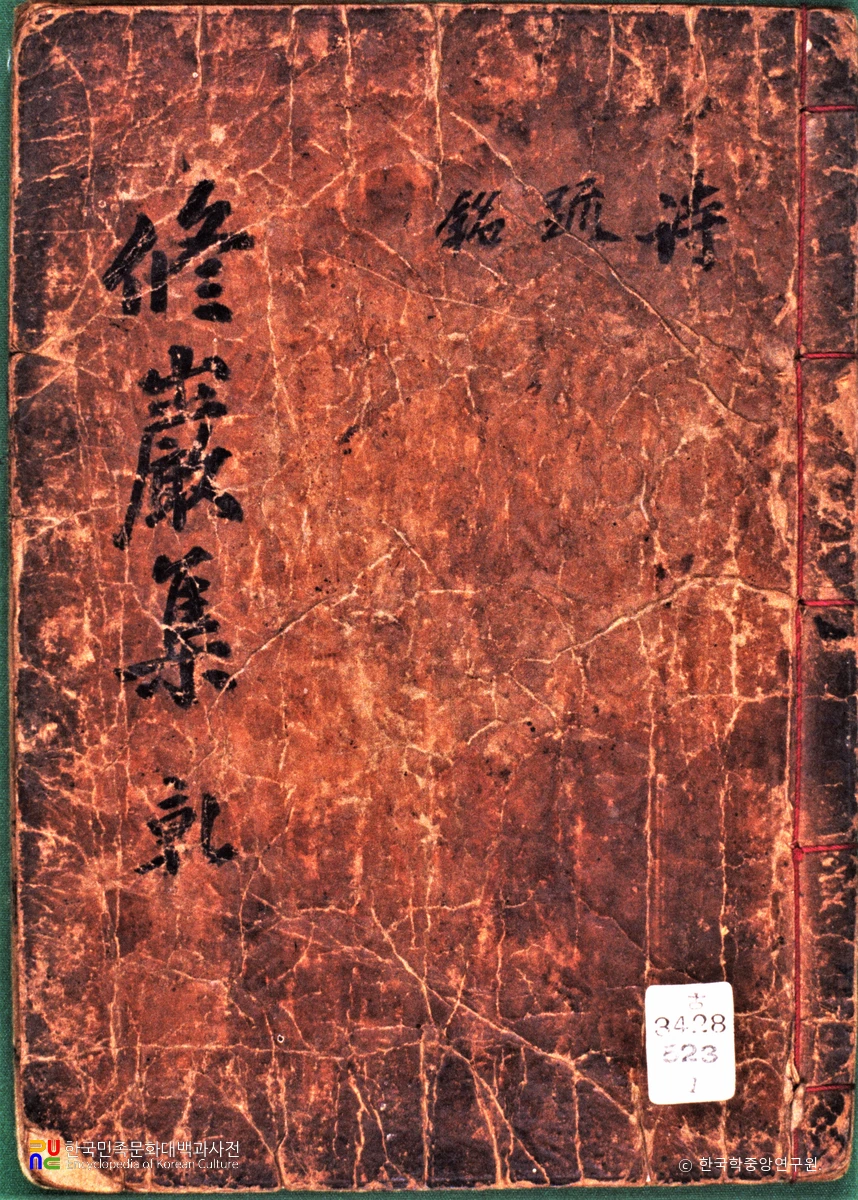 詩 疏 銘
修巖集 乾
古
3428
523
1
한국민족문화대백과사전
Encyclopedia of Korean Culture
© 한국학중앙연구원